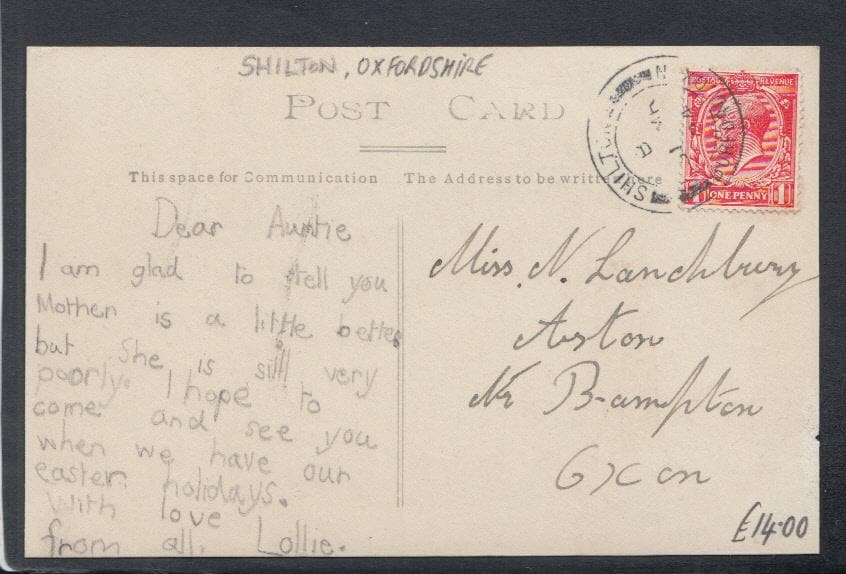 SHILTON, OXFORDSHIRE
POST CARD
This space for Communication The Address to be written here
POSTAGE REVENUE
ONE PENNY
1 1
SHILTON
Dear Auntie
I am glad to tell you
Mother is a little better
but she is silll very
poorly. I hope to
come and see you
when we have our
easter holidays.
With love
from all. Lollie.
Miss. N. Lanchbury
Aston
Nr Bampton
Oxon
£14.00